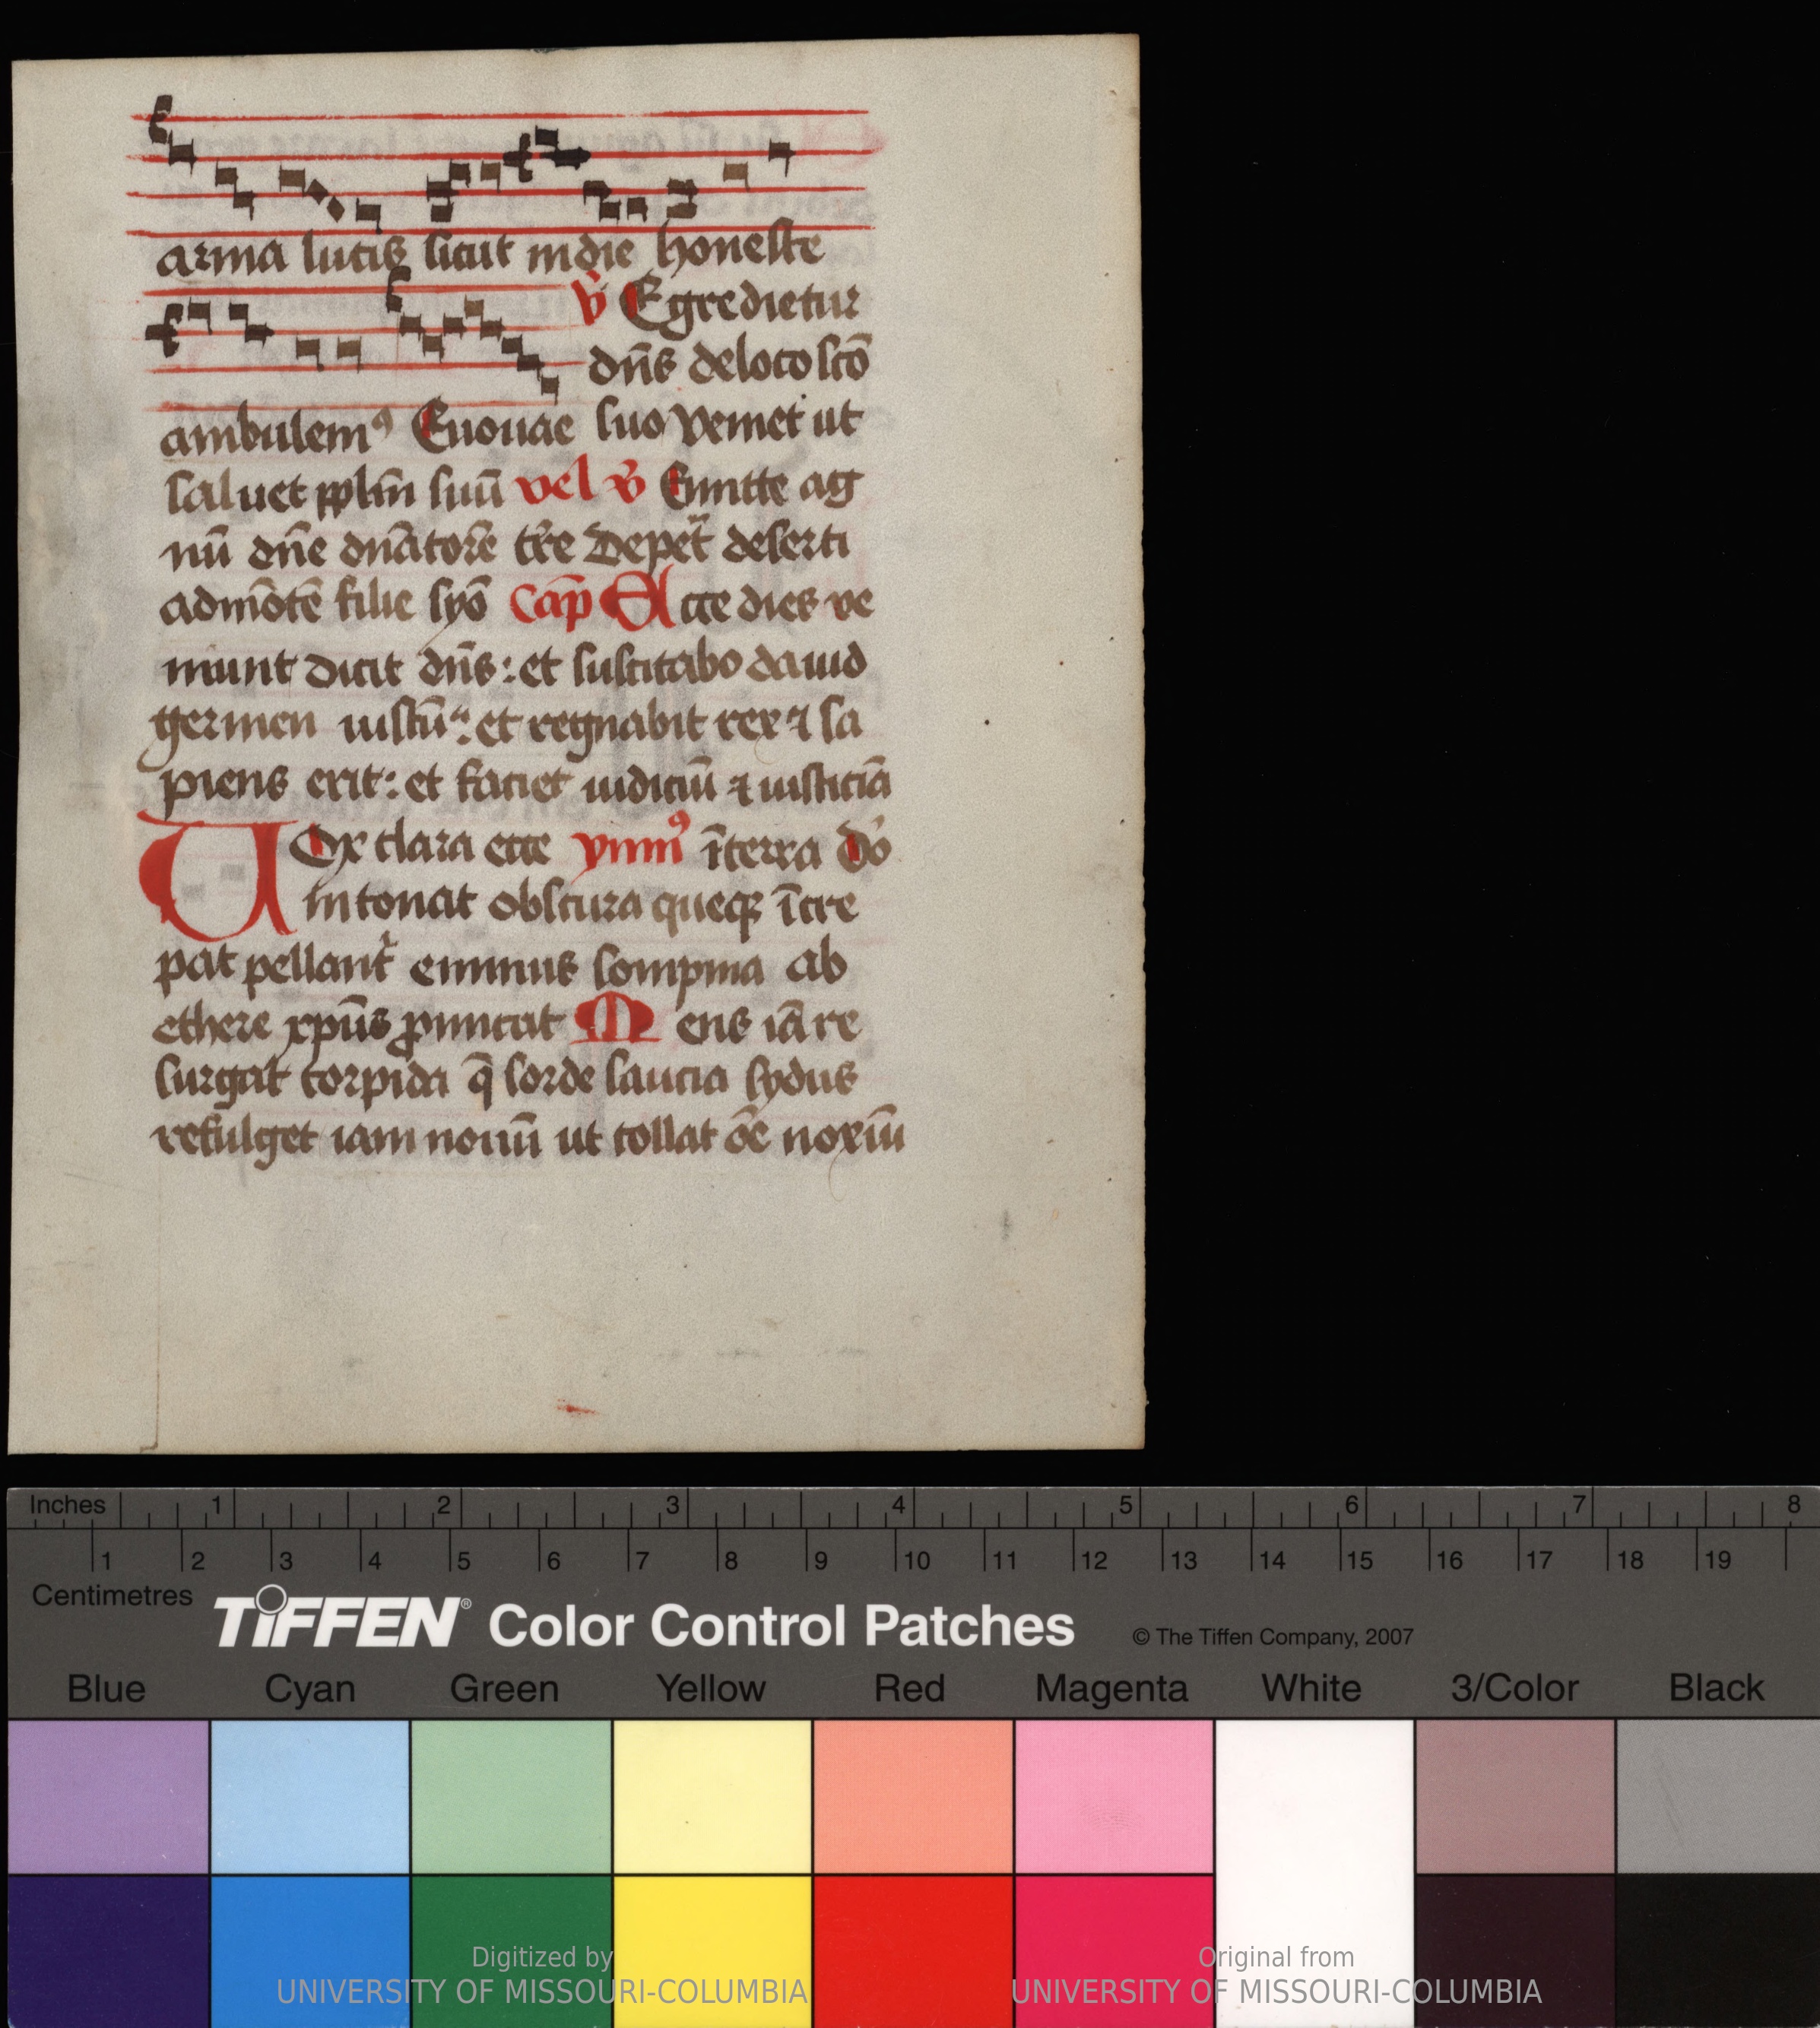 arma lucis sicut in die honeste
v̉ Egredietur
dn̄s de loco sc̄o
ambulemꝰ Euouae suo veniet ut
saluet pplm̄ suū vel v̉ Emitte ag
nū dn̄e dn̄atorē tr̄e De pet̾ deserti
ad mōtē filie syō Cap̄ Ecce dies ve
niunt dicit dn̄s : et suscitabo dauid
germen iustū : et regnabit rex ⁊ sa
piens erit : et faciet iudiciū ⁊ iusticiā
VOx clara ecce ymnꝰ īterra do
intonat obscura queqꝫ īcre
pat pellant᷑ eminus sompnia ab
ethere xp̄us ꝓmicat Mens iā re
surgat torpida q̄ sorde saucia sydus
refulget iam nouū ut tollat ōe noxiū
Inches 1 2 3 4 5 6 7 8
1 2 3 4 5 6 7 8 9 10 11 12 13 14 15 16 17 18 19
Centimetres
TIFFEN® Color Control Patches © The Tiffen Company, 2007
Blue Cyan Green Yellow Red Magenta White 3/Color Black
Digitized by
UNIVERSITY OF MISSOURI-COLUMBIA
Original from
UNIVERSITY OF MISSOURI-COLUMBIA